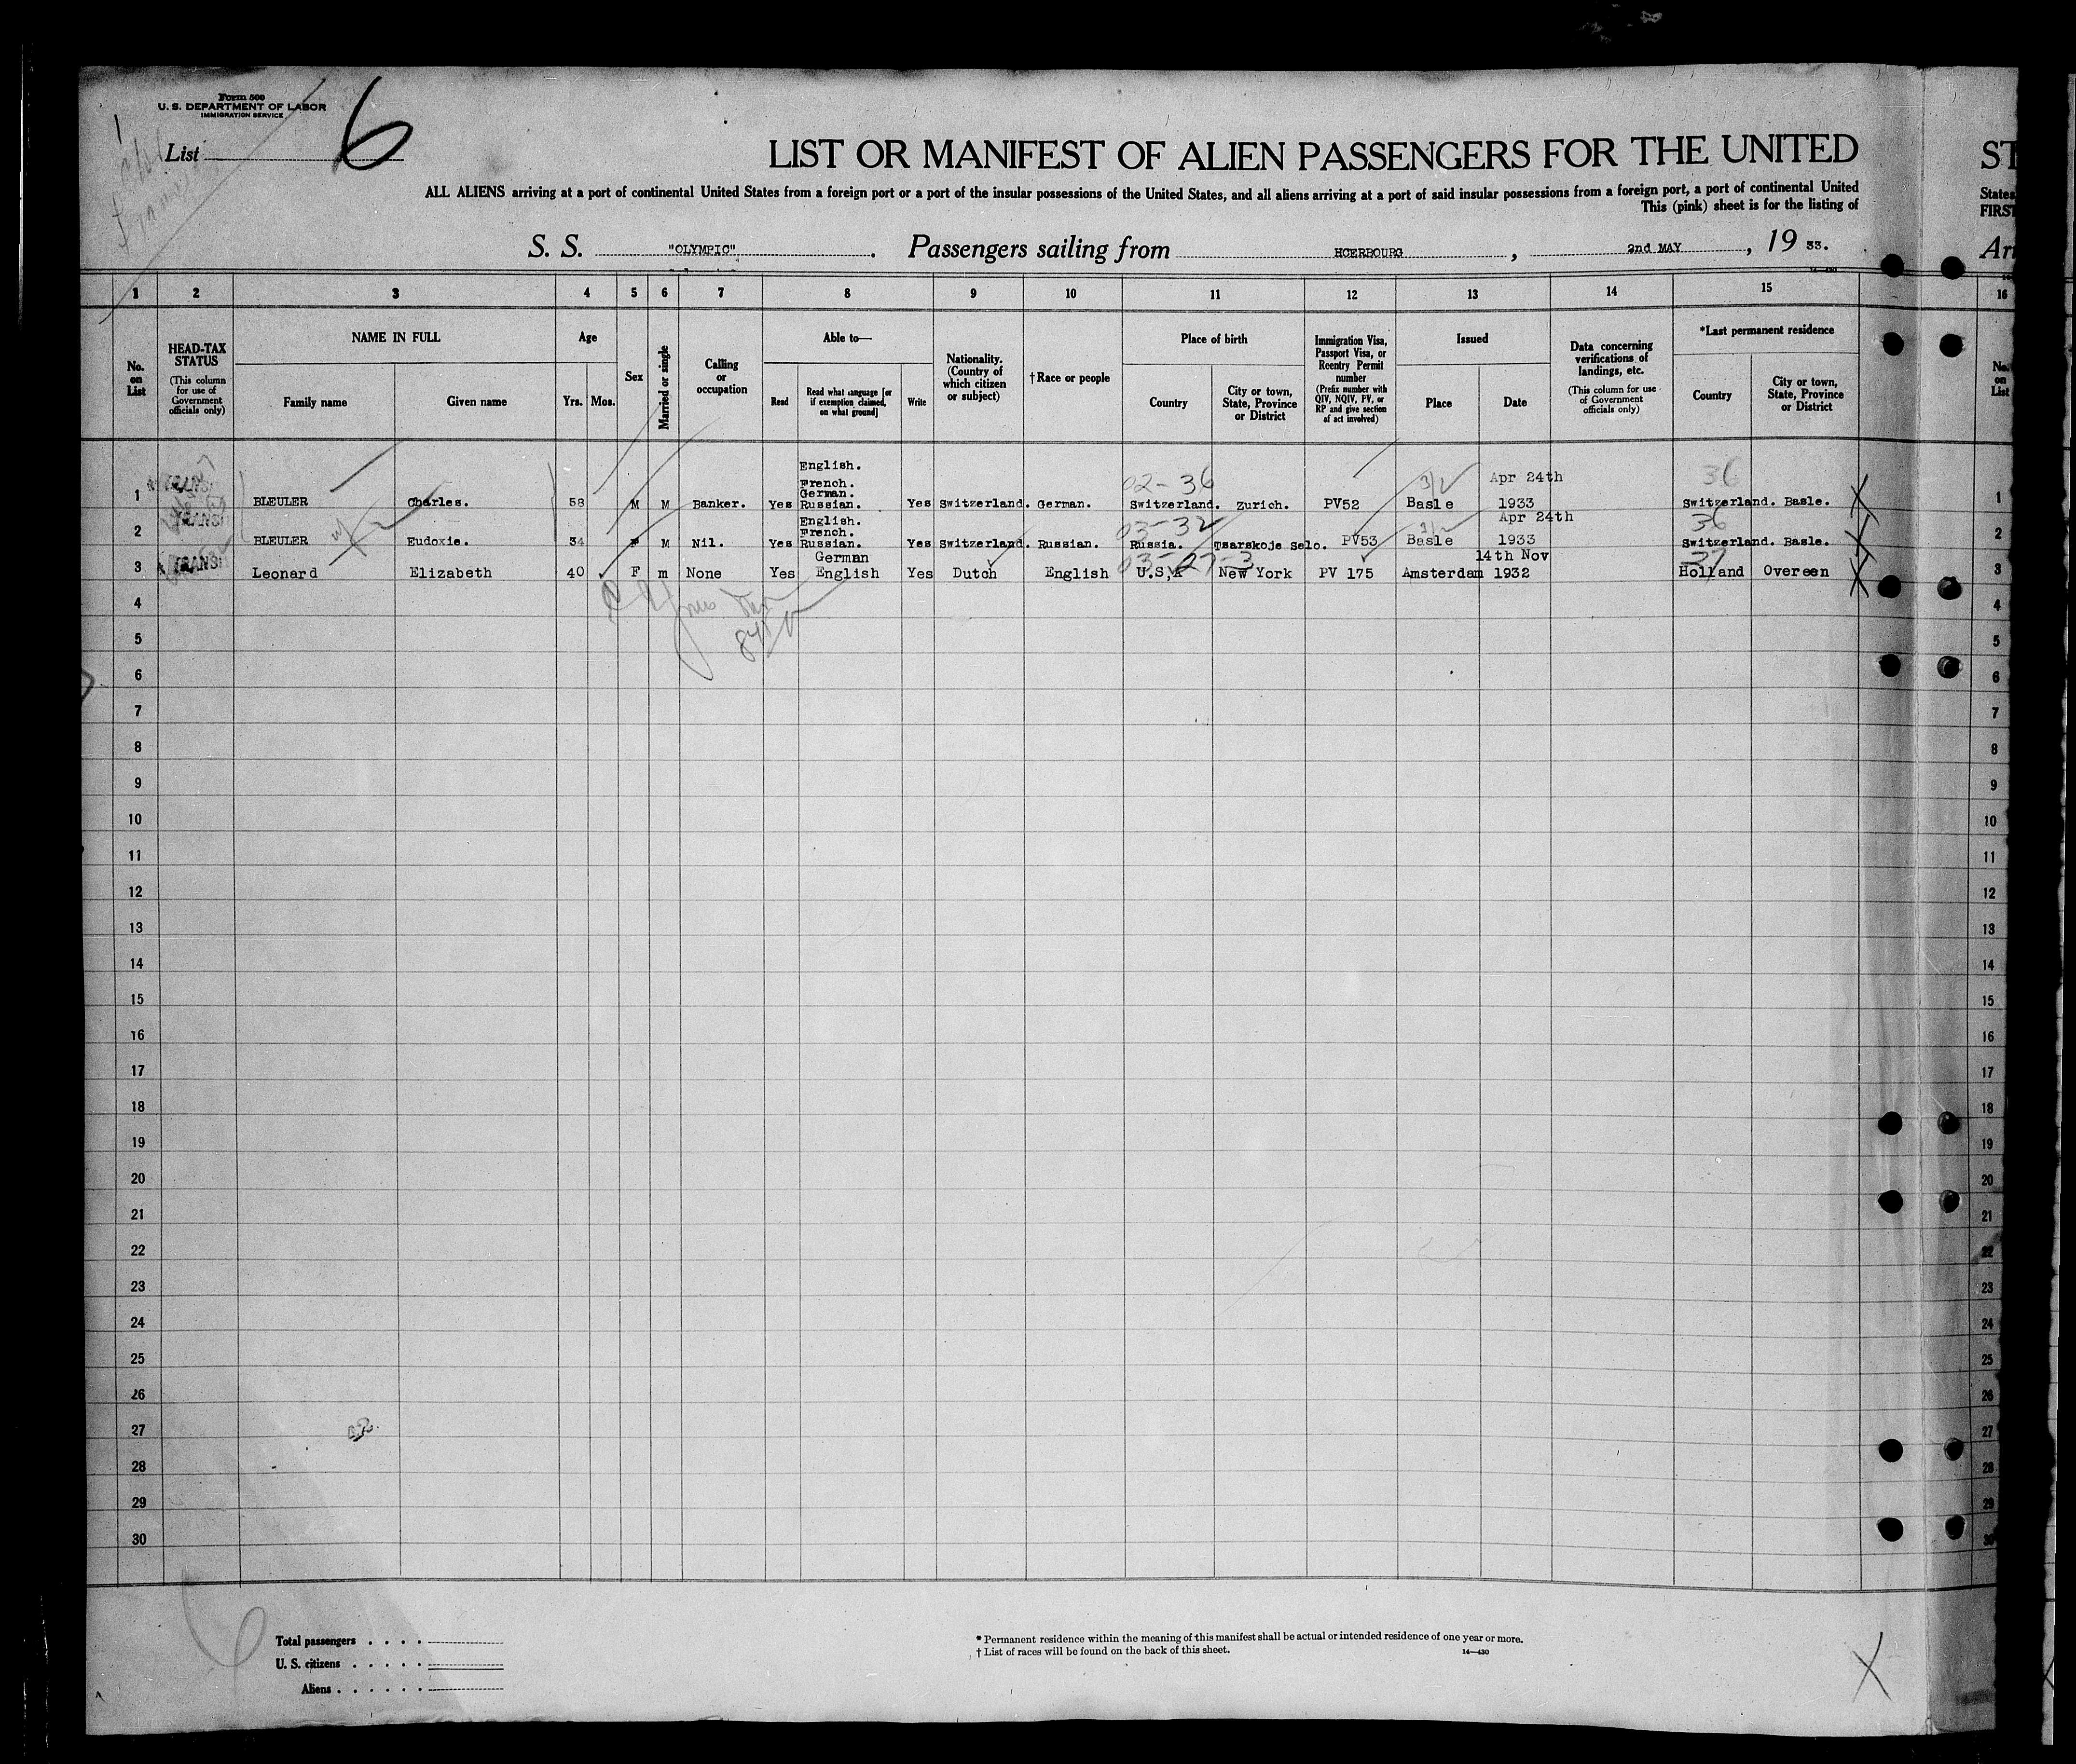 Form 500
U. S. DEPARTMENT OF LABOR
IMMIGRATION SERVICE
List 6
LIST OR MANIFEST OF ALIEN PASSENGERS FOR THE UNITED
ST
ALL ALIENS arriving at a port of continental United States from a foreign port or a port of the insular possessions of the United States, and all aliens arriving at a port of said insular possessions from a foreign port, a port of continental United
States
This (pink) sheet is for the listing of
FIRST
S. S. "OLYMPIC". Passengers sailing from HCERBOURG, 2nd MAY, 19 33.
Arr
1 2 3 4 5 6 7 8 9 10 11 12 13 14 15 16
No. on List
HEAD-TAX STATUS (This column for use of Government officials only)
NAME IN FULL
Family name Given name
Age
Yrs. Mos.
Sex
Married or single
Calling or occupation
Able to—
Read Read what language [or if exemption claimed, on what ground] Write
Nationality. (Country of which citizen or subject)
†Race or people
Place of birth
Country City or town, State, Province or District
Immigration Visa, Passport Visa, or Reentry Permit number (Prefix number with QIV, NQIV, PV, or RP and give section of act involved)
Issued
Place Date
Data concerning verifications of landings, etc. (This column for use of Government officials only)
*Last permanent residence
Country City or town, State, Province or District
No. on List
English.
French. 02-36 3/2 Apr 24th 36
German.
1 TRANSIT BLEULER Charles. 58 M M Banker. Yes Russian. Yes Switzerland. German. Switzerland. Zurich. PV52 Basle 1933 Switzerland. Basle. X 1
English. 03-32 3/2 Apr 24th 36
French.
2 TRANSIT BLEULER Eudoxie. 34 F M Nil. Yes Russian. Yes Switzerland. Russian. Russia. Tsarskoje Selo. PV53 Basle 1933 Switzerland. Basle. X 2
German 03-27-3 14th Nov 37
3 TRANSIT Leonard Elizabeth 40 F m None Yes English Yes Dutch English U.S,A New York PV 175 Amsterdam 1932 Holland Overeen X 3
4 4
5 5
6 6
7 7
8 8
9 9
10 10
11 11
12 12
13 13
14 14
15 15
16 16
17 17
18 18
19 19
20 20
21 21
22 22
23 23
24 24
25 25
26 26
27 27
28 28
29 29
30 30
Total passengers
U. S. citizens
Aliens
* Permanent residence within the meaning of this manifest shall be actual or intended residence of one year or more.
† List of races will be found on the back of this sheet. 14—430
X